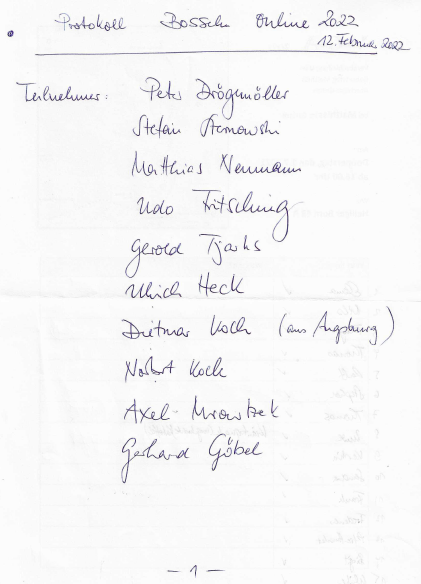 Protokoll Bosseln Online 2022
12. Februar 2022
Teilnehmer: Peter Drögemöller
Stefan
Matthias Neumann
Udo Fritsching
Gerold Tjarks
Ulrich Heck
Dietmar Koch (aus Augsburg)
Norbert Kock
Axel Mrowitzek
Gerhard Göbel
- 1 -